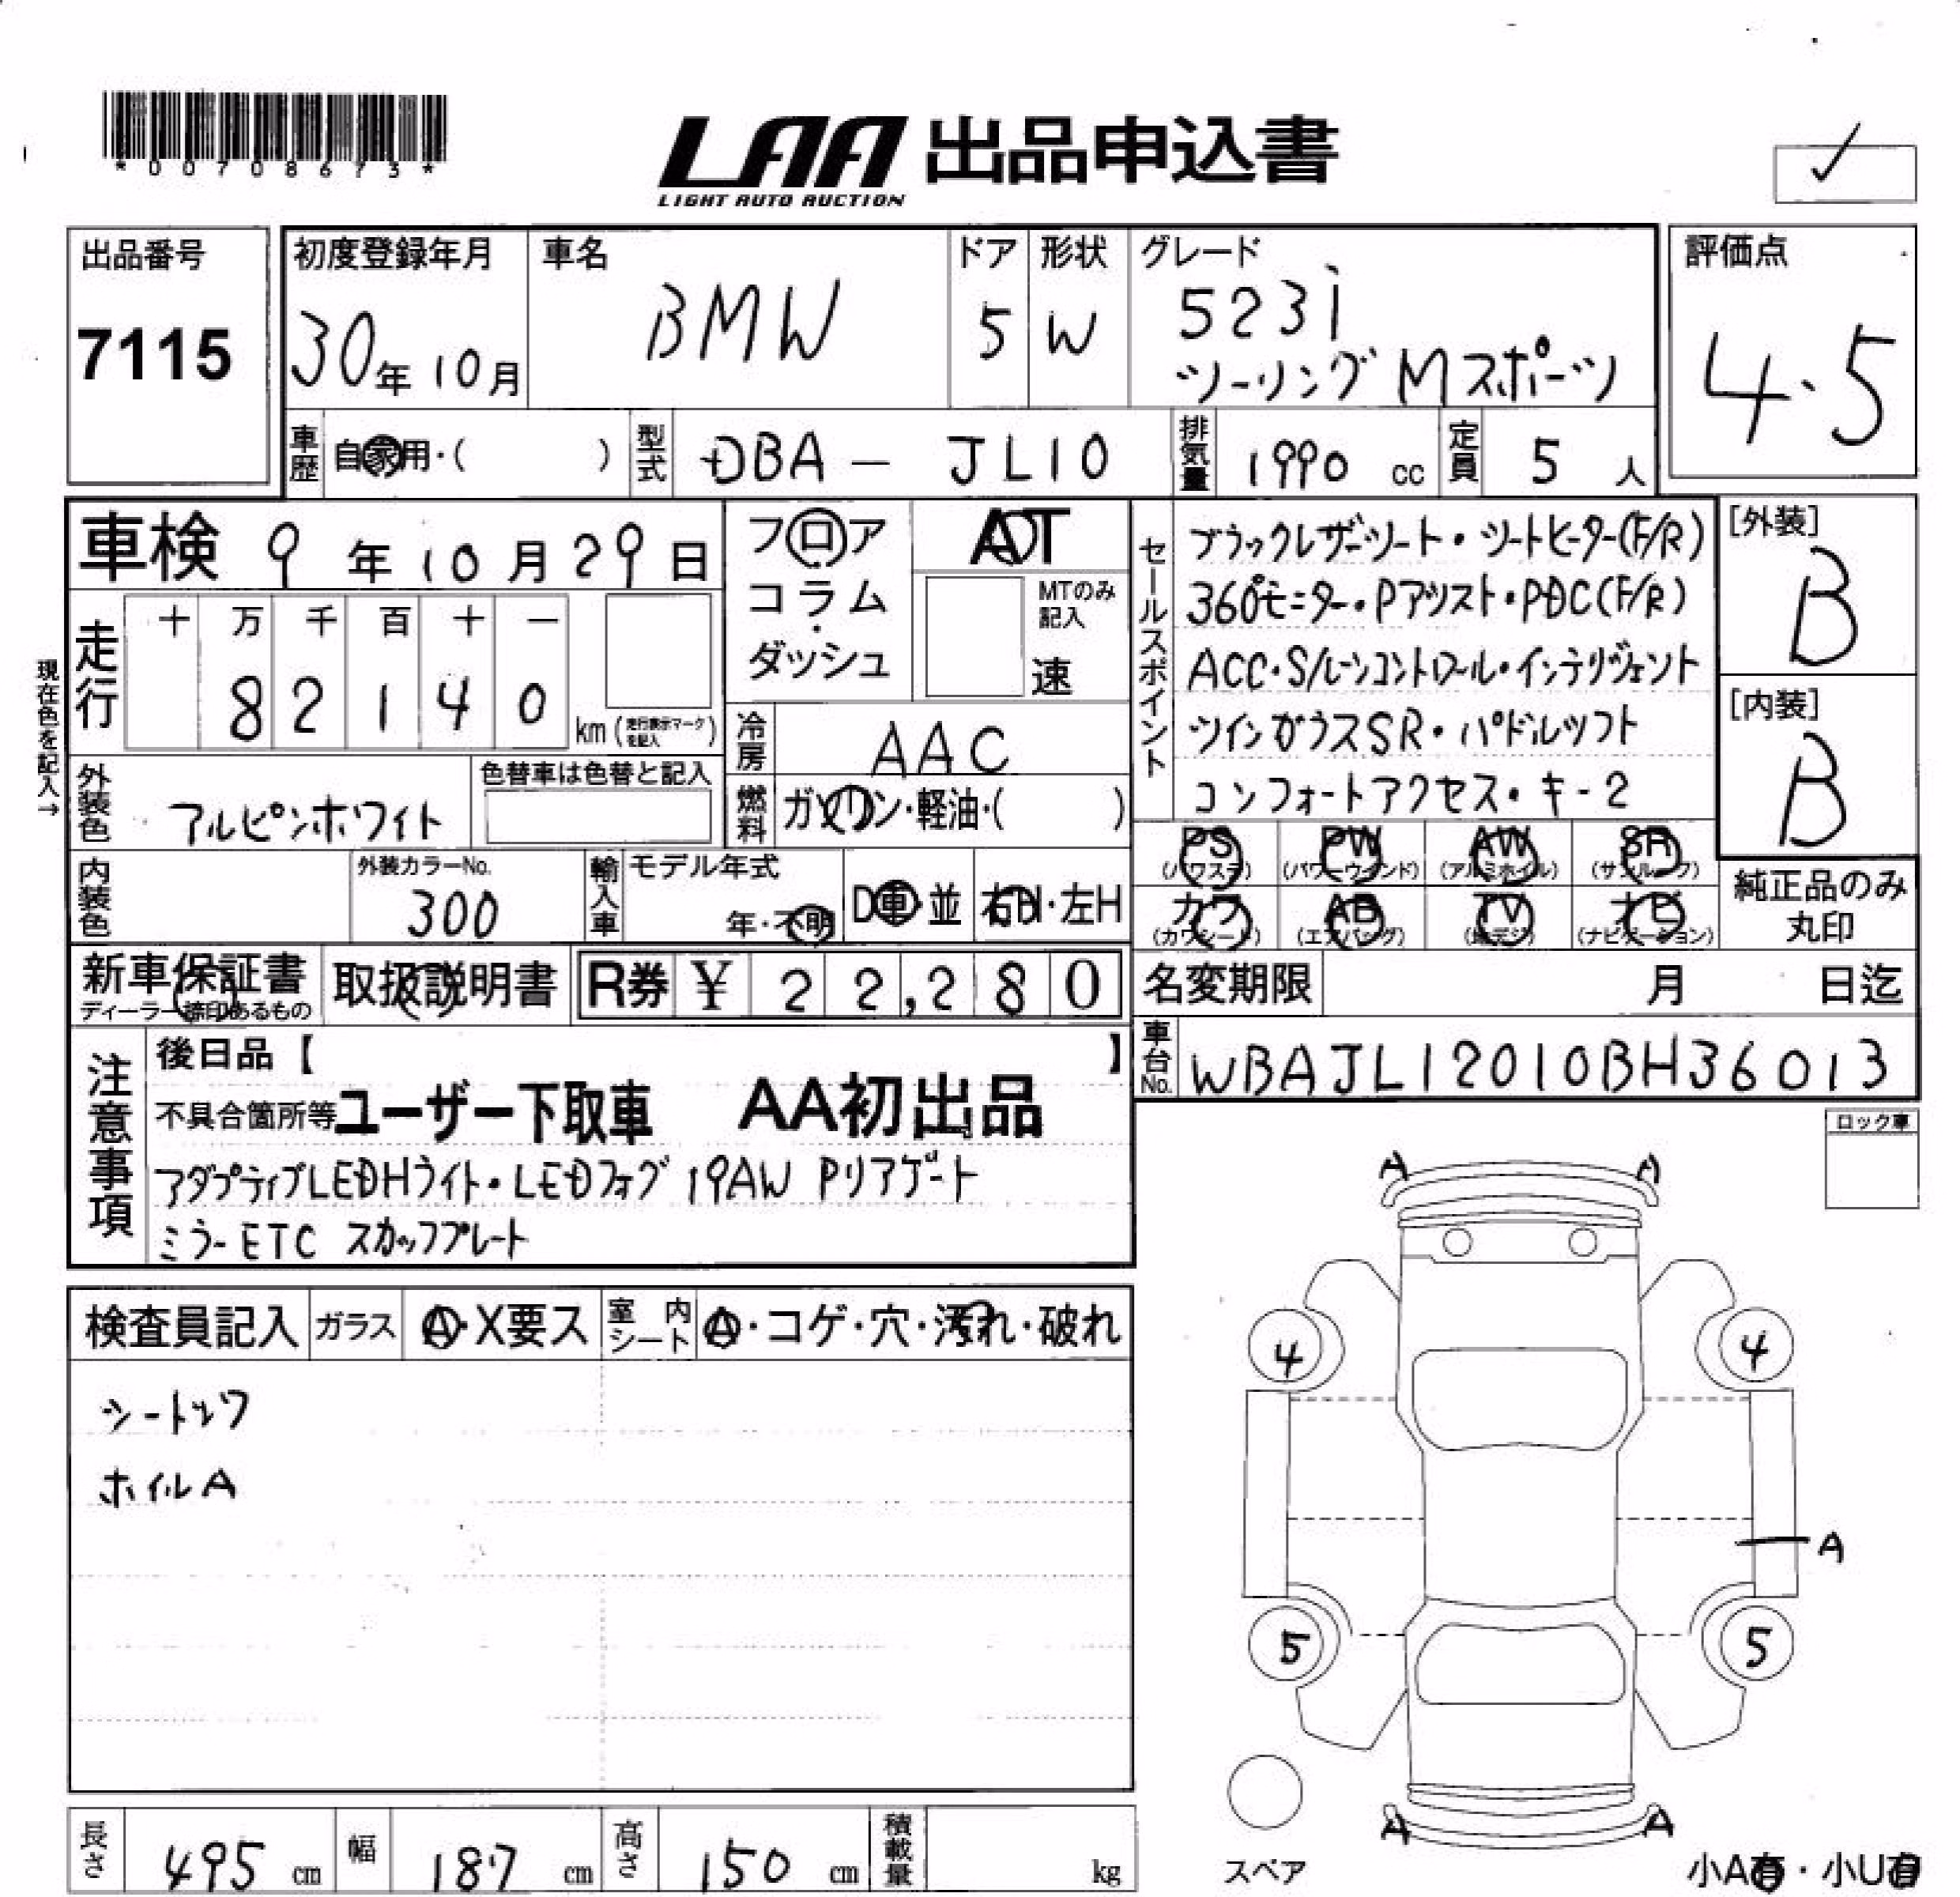 *00708673*
LAA 出品申込書
LIGHT AUTO AUCTION
✓
出品番号
7115
初度登録年月
30年10月
車名
BMW
ドア
5
形状
W
グレード
523i
ツーリング Mスポーツ
評価点
4.5
車歴
自家用・( )
型式
DBA - JL10
排気量
1990 cc
定員
5 人
車検 9年10月29日
現在色を記入→
走行
十 万 千 百 十 一
8 2 1 4 0
km (走行表示マークを記入)
フロア
コラム・
ダッシュ
AT
MTのみ記入
速
冷房
AAC
燃料
ガソリン・軽油・( )
外装色
アルピンホワイト
色替車は色替と記入
内装色
外装カラーNo.
300
輸入車
モデル年式
年・不明
D車・並
右H・左H
セールスポイント
ブラックレザーシート・シートヒーター(F/R)
360°モニター・Pアシスト・PDC(F/R)
ACC・S/レーンコントロール・インテリジェント
ツインガラスSR・パドルシフト
コンフォートアクセス・キー2
[外装]
B
[内装]
B
PS (パワステ) PW (パワーウインド) AW (アルミホイル) SR (サンルーフ)
カワ (カワシート) AB (エアバッグ) TV (地デジ) ナビ (ナビゲーション)
純正品のみ
丸印
新車保証書
ディーラー捺印あるもの
取扱説明書
R券 ¥ 22,280
名変期限 月 日迄
車台No.
WBAJL12010BH36013
注意事項
後日品【 】
不具合箇所等 ユーザー下取車 AA初出品
アダプティブLEDHライト・LEDフォグ 19AW Pリアゲート
ミラーETC スカッフプレート
ロック車
検査員記入
ガラス
A・X要ス
室内シート
A・コゲ・穴・汚れ・破れ
シートシワ
ホイルA
A A
4 4
A
5 5
A A
スペア
小A有・小U有
長さ 495 cm
幅 187 cm
高さ 150 cm
積載量 kg